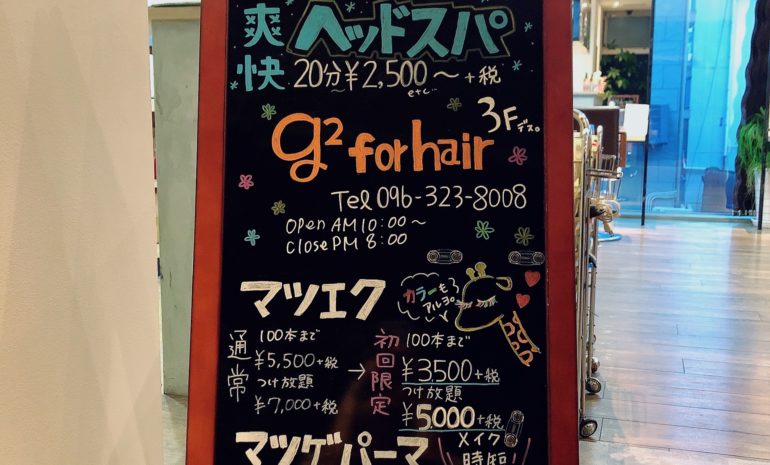 爽快 ヘッドスパ
20分~¥2,500~+税
etc
3Fデス。
g² for hair
Tel 096-323-8008
OPen AM10:00~
Close PM 8:00
マツエク
カラーも
アルヨ♪
通常
100本まで
¥5,500+税
つけ放題
¥7,000+税
→
初回限定
100本まで
¥3500+税
つけ放題
¥5000+税
マツゲパーマ
メイク
時短